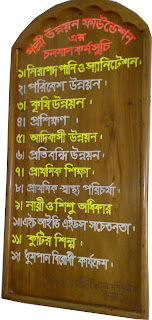 পল্লী উন্নয়ন ফাউন্ডেশন
এর
চলমান কর্মসূচি
১। নিরাপদ পানি ও স্যানিটেশন।
২। পরিবেশ উন্নয়ন।
৩। কৃষি উন্নয়ন।
৪। প্রশিক্ষণ।
৫। আদিবাসী উন্নয়ন।
৬। প্রতিবন্ধি উন্নয়ন।
৭। প্রাথমিক শিক্ষা।
৮। প্রাথমিক স্বাস্থ্য পরিচর্যা
৯। নারী ও শিশু অধিকার
১০। এইচ আইভি এইডস সচেতনতা।
১১। কুটির শিল্প।
১২। ধুমপান বিরোধী কার্যক্রম।